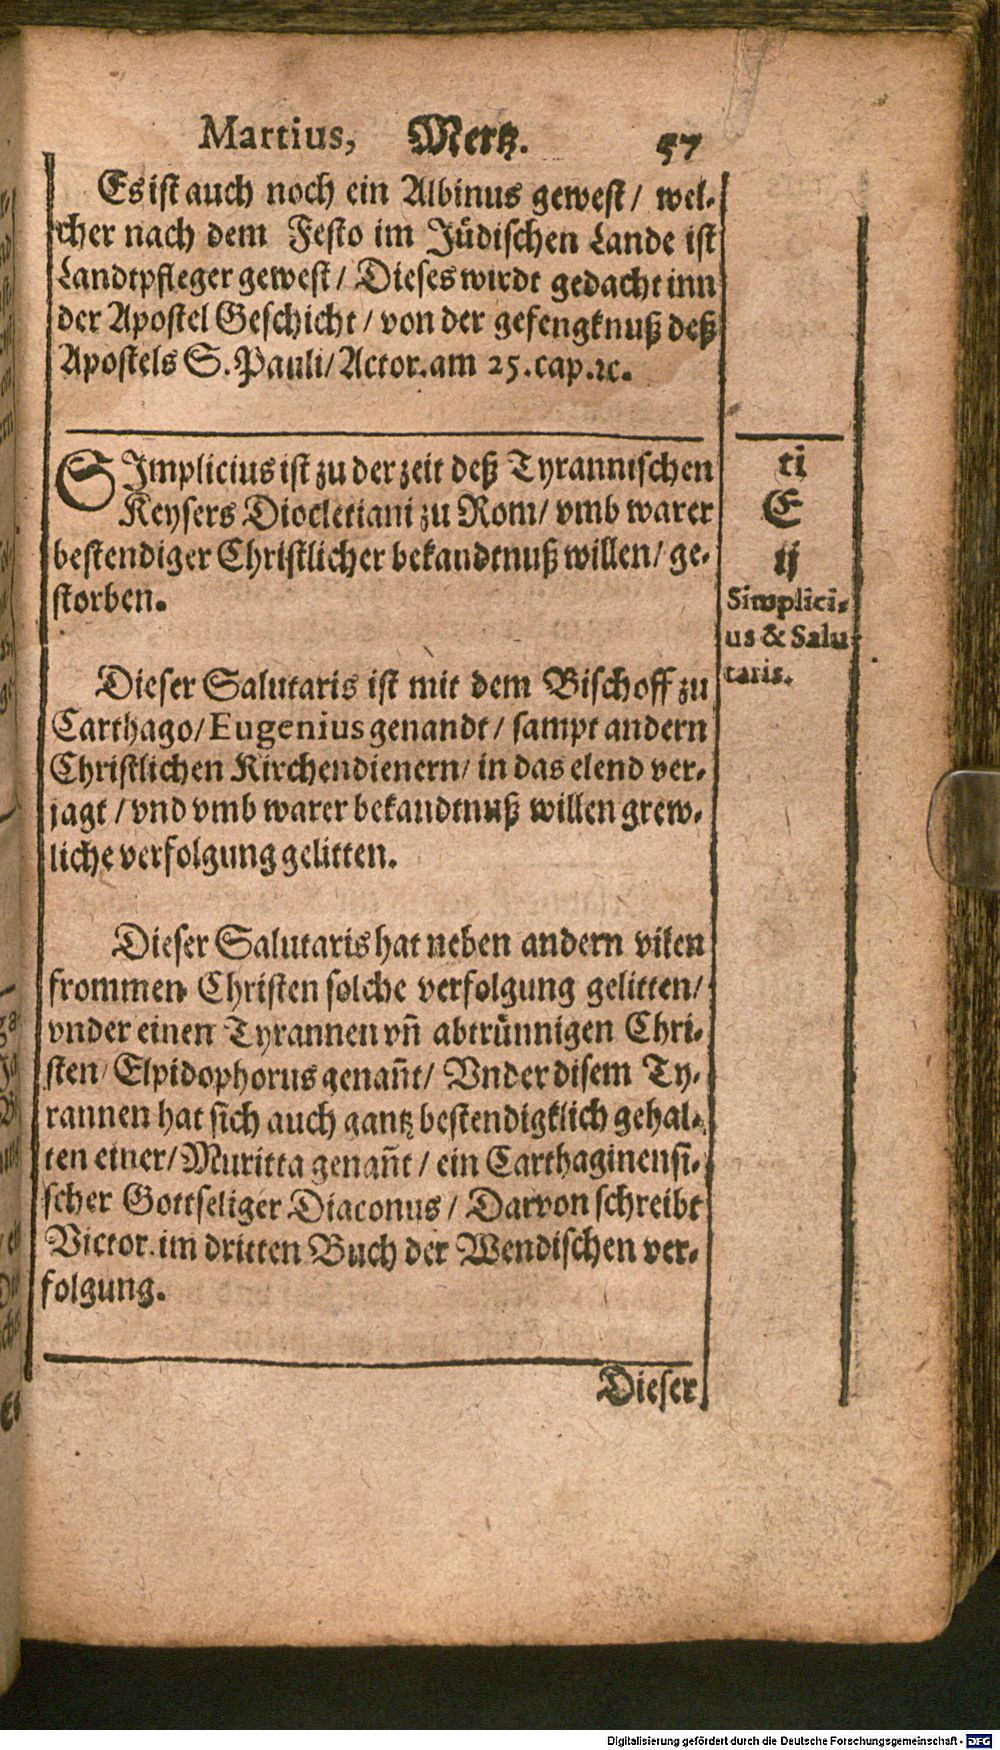 Martius, Mertz. 57
Es ist auch noch ein Albinus gewest/ wel-
cher nach dem Festo im Jüdischen Lande ist
Landtpfleger gewest/ Dieses wirdt gedacht inn
der Apostel Geschicht/ von der gefengknuß deß
Apostels S. Pauli/ Actor. am 25. cap. ꝛc.
SImplicius ist zu der zeit deß Tyrannischen
Keysers Diocletiani zu Rom/ vmb warer
bestendiger Christlicher bekandtnuß willen/ ge-
storben.
ti
E
ij
Simplici-
us & Salu-
taris.
Dieser Salutaris ist mit dem Bischoff zu
Carthago/ Eugenius genandt/ sampt andern
Christlichen Kirchendienern/ in das elend ver-
jagt/ vnd vmb warer bekandtnuß willen grew-
liche verfolgung gelitten.
Dieser Salutaris hat neben andern vilen
frommen Christen solche verfolgung gelitten/
vnder einen Tyrannen vñ abtrünnigen Chri-
sten/ Elpidophorus genañt/ Vnder disem Ty-
rannen hat sich auch gantz bestendigklich gehal-
ten einer/ Muritta genañt/ ein Carthaginensi-
scher Gottseliger Diaconus/ Darvon schreibt
Victor. im dritten Buch der Wendischen ver-
folgung.
Dieser
Digitalisierung gefördert durch die Deutsche Forschungsgemeinschaft - DFG